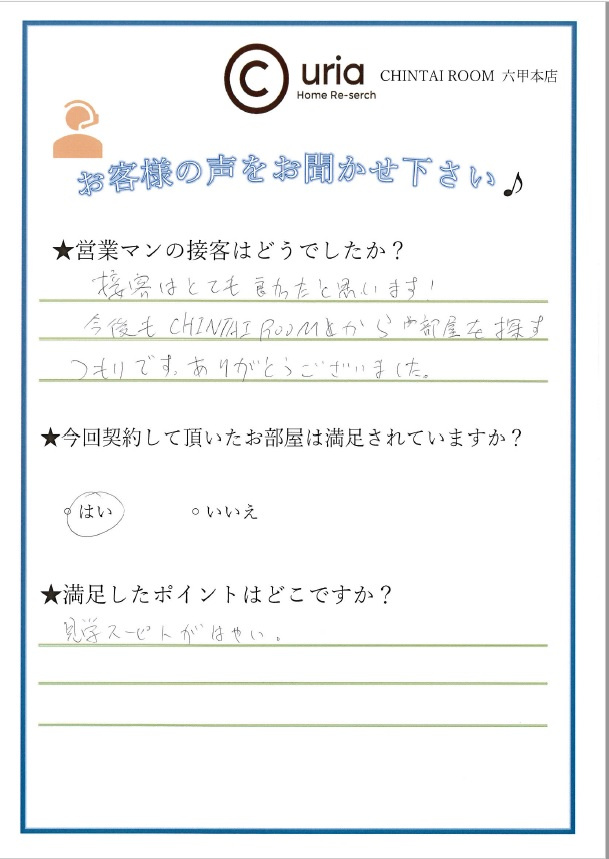 C uria
Home Re-serch
CHINTAI ROOM 六甲本店
お客様の声をお聞かせ下さい♪
★営業マンの接客はどうでしたか？
接客はとても良かったと思います!
今後も CHINTAI ROOM から お部屋を探す
つもりです。ありがとうございました。
★今回契約して頂いたお部屋は満足されていますか？
○ はい ○ いいえ
★満足したポイントはどこですか？
見学スピートがはやい。